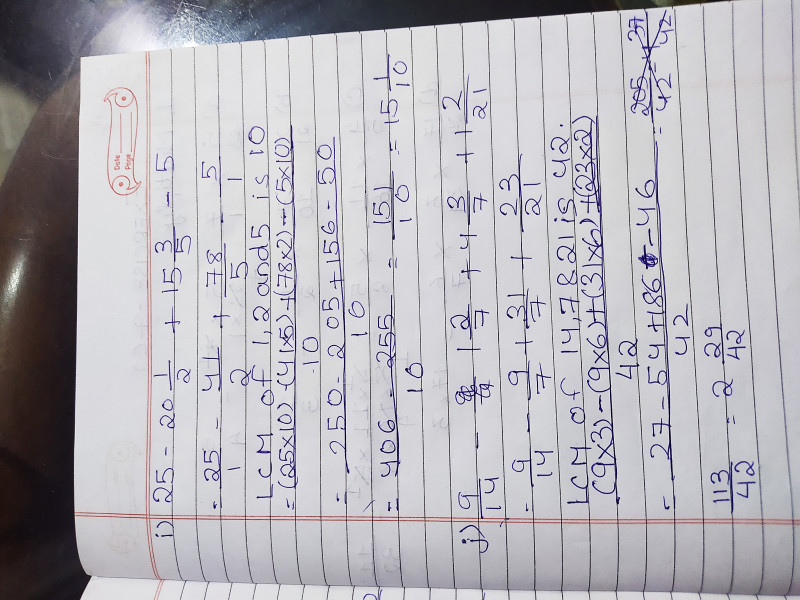 Date
Page
i) 25 - 20 1/2 + 15 3/5 - 5
= 25/1 - 41/2 + 78/5 - 5/1
LCM of 1,2 and 5 is 10
= (25x10)-(41x5)+(78x2)-(5x10)/10
= 250-205+156-50/10
= 406-255/10 = 151/10 = 15 1/10
j) 9/14 - 1 2/7 + 4 3/7 + 1 2/21
= 9/14 - 9/7 + 31/7 + 23/21
LCM of 14,7 & 21 is 42.
(9x3)-(9x6)+(31x6)+(23x2)/42
= 27-54+186-46/42 = 205/42 =
113/42 = 2 29/42